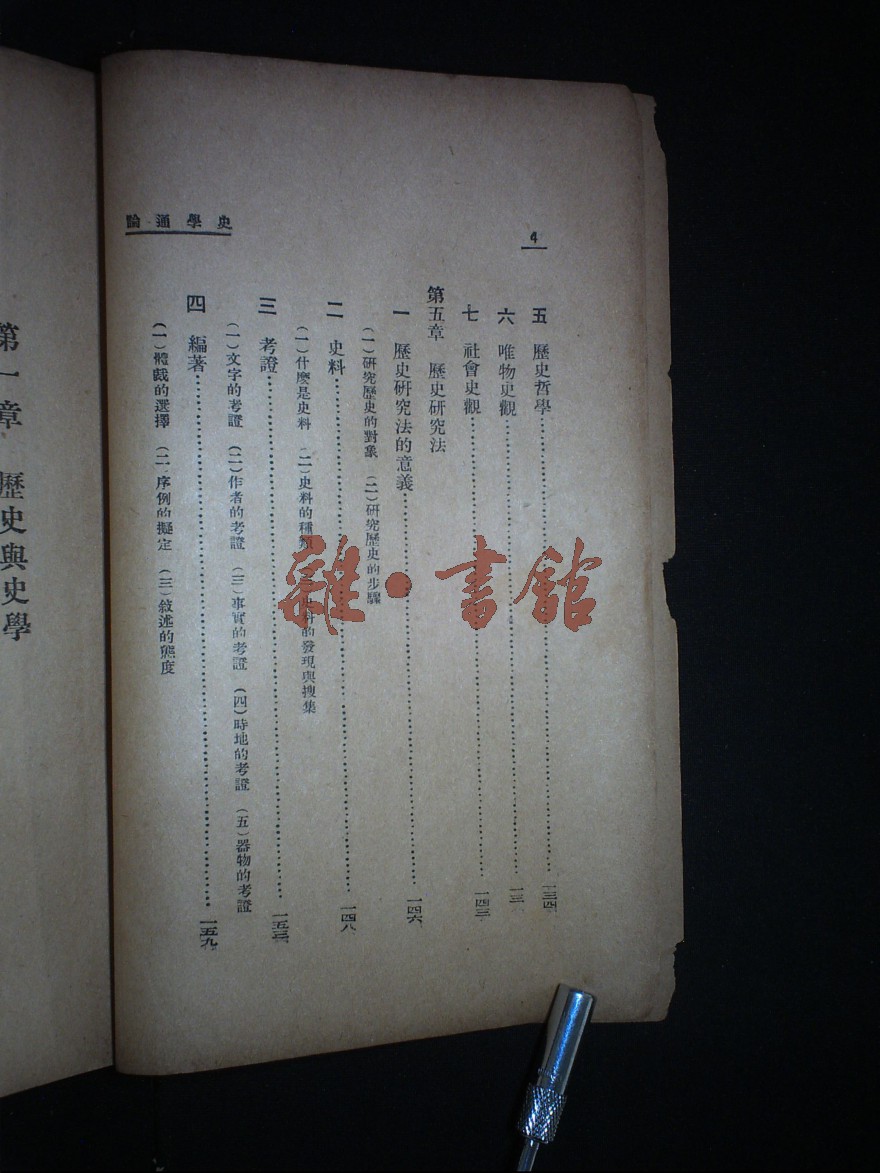 史學通論
4
五 歷史哲學……一三四
六 唯物史觀……一三
七 社會史觀……一四三
第五章 歷史研究法
一 歷史研究法的意義……一四六
（一）研究歷史的對象 （二）研究歷史的步驟
二 史料……一四八
（一）什麼是史料 （二）史料的種類 史料的發現與搜集
三 考證……一五三
（一）文字的考證 （二）作者的考證 （三）事實的考證 （四）時地的考證 （五）器物的考證
四 編著……一五九
（一）體裁的選擇 （二）序例的擬定 （三）敘述的態度
第一章 歷史與史學
雜·書館